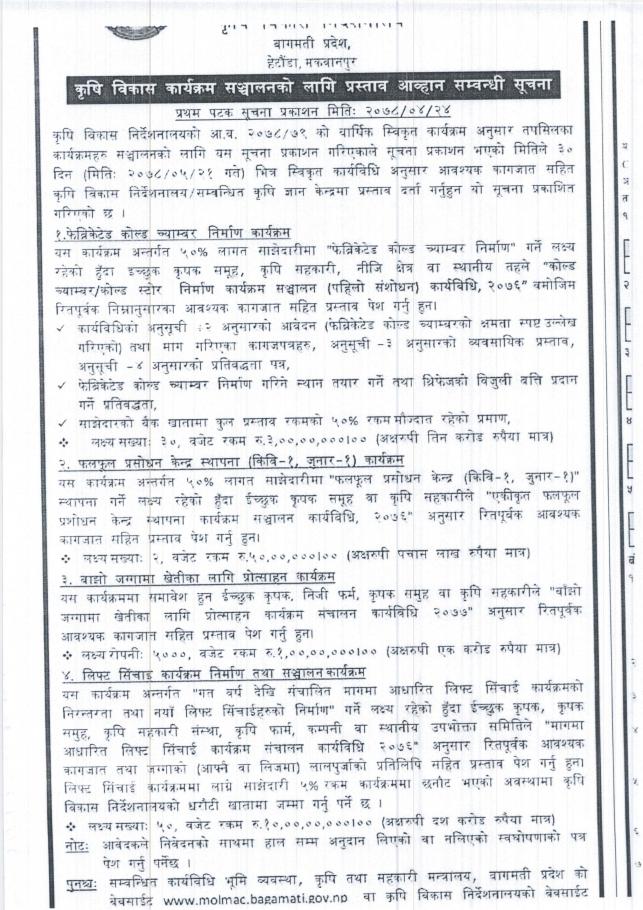 बागमती प्रदेश,
हेटौडा, मकवानपुर
कृषि विकास कार्यक्रम सञ्चालनको लागि प्रस्ताव आव्हान सम्वन्धी सूचना
प्रथम पटक सूचना प्रकाशन मितिः २०७८/०४/२४
कृषि विकास निर्देशनालयको आ.व. २०७८/७९ को वार्षिक स्विकृत कार्यक्रम अनुसार तपसिलका
कार्यक्रमहरु सञ्चालनको लागि यस सूचना प्रकाशन गरिएकाले सूचना प्रकाशन भएको मितिले ३०
दिन (मितिः २०७८/०५/२१ गते) भित्र स्विकृत कार्यविधि अनुसार आवश्यक कागजात सहित
कृषि विकास निर्देशनालय/सम्वन्धित कृषि ज्ञान केन्द्रमा प्रस्ताव दर्ता गर्नुहुन यो सूचना प्रकाशित
गरिएको छ ।
१.फेब्रिकेटेड कोल्ड च्याम्बर निर्माण कार्यक्रम
यस कार्यक्रम अन्तर्गत ५०% लागत साझेदारीमा "फेब्रिकेटेड कोल्ड च्याम्बर निर्माण" गर्ने लक्ष्य
रहेको हुँदा इच्छुक कृषक समूह, कृषि सहकारी, नीजि क्षेत्र वा स्थानीय तहले "कोल्ड
च्याम्बर/कोल्ड स्टोर निर्माण कार्यक्रम सञ्चालन (पहिलो संशोधन) कार्यविधि, २०७६" वमोजिम
रितपूर्वक निम्नानुसारका आवश्यक कागजात सहित प्रस्ताव पेश गर्नु हुन।
✓ कार्यविधिको अनुसूची :२ अनुसारको आवेदन (फेब्रिकेटेड कोल्ड च्याम्बरको क्षमता स्पष्ट उल्लेख
गरिएको) तथा माग गरिएका कागजपत्रहरु, अनुसूची -३ अनुसारको व्यवसायिक प्रस्ताव,
अनुसूची -४ अनुसारको प्रतिवद्धता पत्र,
✓ फेब्रिकेटेड कोल्ड च्याम्बर निर्माण गरिने स्थान तयार गर्ने तथा थ्रिफेजको बिजुली बत्ति प्रदान
गर्ने प्रतिवद्धता,
✓ साझेदारको बैंक खातामा कुल प्रस्ताव रकमको ५०% रकम मौज्दात रहेको प्रमाण,
❖ लक्ष्य सख्याः ३०, वजेट रकम रु.३,००,००,०००।०० (अक्षरुपी तिन करोड रुपैया मात्र)
२. फलफूल प्रसोधन केन्द्र स्थापना (किवि-१, जुनार-१) कार्यक्रम
यस कार्यक्रम अन्तर्गत ५०% लागत साझेदारीमा "फलफूल प्रसोधन केन्द्र (किवि-१, जुनार-१)"
स्थापना गर्ने लक्ष्य रहेको हुँदा ईच्छुक कृषक समूह वा कृषि सहकारीले "एकीकृत फलफूल
प्रशोधन केन्द्र स्थापना कार्यक्रम सञ्चालन कार्यविधि, २०७६" अनुसार रितपूर्वक आवश्यक
कागजात सहित प्रस्ताव पेश गर्नु हुन।
❖ लक्ष्य सख्याः २, वजेट रकम रु.५०,००,०००।०० (अक्षरुपी पचास लाख रुपैया मात्र)
३. बाझो जग्गामा खेतीका लागि प्रोत्साहन कार्यक्रम
यस कार्यक्रममा समावेश हुन ईच्छुक कृषक, निजी फर्म, कृषक समुह वा कृषि सहकारीले "बाँझो
जग्गामा खेतीका लागि प्रोत्साहन कार्यक्रम संचालन कार्यविधि २०७७" अनुसार रितपूर्वक
आवश्यक कागजात सहित प्रस्ताव पेश गर्नु हुन।
❖ लक्ष्य रोपनीः ५०००, वजेट रकम रु.१,००,००,०००।०० (अक्षरुपी एक करोड रुपैया मात्र)
४. लिफ्ट सिंचाइ कार्यक्रम निर्माण तथा सञ्चालन कार्यक्रम
यस कार्यक्रम अन्तर्गत "गत वर्ष देखि संचालित मागमा आधारित लिफ्ट सिंचाई कार्यक्रमको
निरन्तरता तथा नयाँ लिफ्ट सिंचाईहरुको निर्माण" गर्ने लक्ष्य रहेको हुँदा ईच्छुक कृषक, कृषक
समुह, कृषि सहकारी संस्था, कृषि फार्म, कम्पनी वा स्थानीय उपभोक्ता समितिले "मागमा
आधारित लिफ्ट सिंचाई कार्यक्रम संचालन कार्यविधि २०७६" अनुसार रितपूर्वक आवश्यक
कागजात तथा जग्गाको (आफ्नै वा लिजमा) लालपुर्जाको प्रतिलिपि सहित प्रस्ताव पेश गर्नु हुन।
लिफ्ट सिंचाई कार्यक्रममा लाग्ने साझेदारी ५% रकम कार्यक्रममा छनौट भएको अवस्थामा कृषि
विकास निर्देशनालयको धरौटी खातामा जम्मा गर्नु पर्ने छ ।
❖ लक्ष्य सख्याः ५०, वजेट रकम रु.१०,००,००,०००।०० (अक्षरुपी दश करोड रुपैया मात्र)
नोटः आवेदकले निवेदनको साथमा हाल सम्म अनुदान लिएको वा नलिएको स्वघोषणाको पत्र
पेश गर्नु पर्नेछ ।
पुनश्चः सम्वन्धित कार्यविधि भूमि व्यवस्था, कृषि तथा सहकारी मन्त्रालय, वागमती प्रदेश को
वेवसाईट www.molmac.bagamati.gov.np वा कृषि विकास निर्देशनालयको वेबसाईट